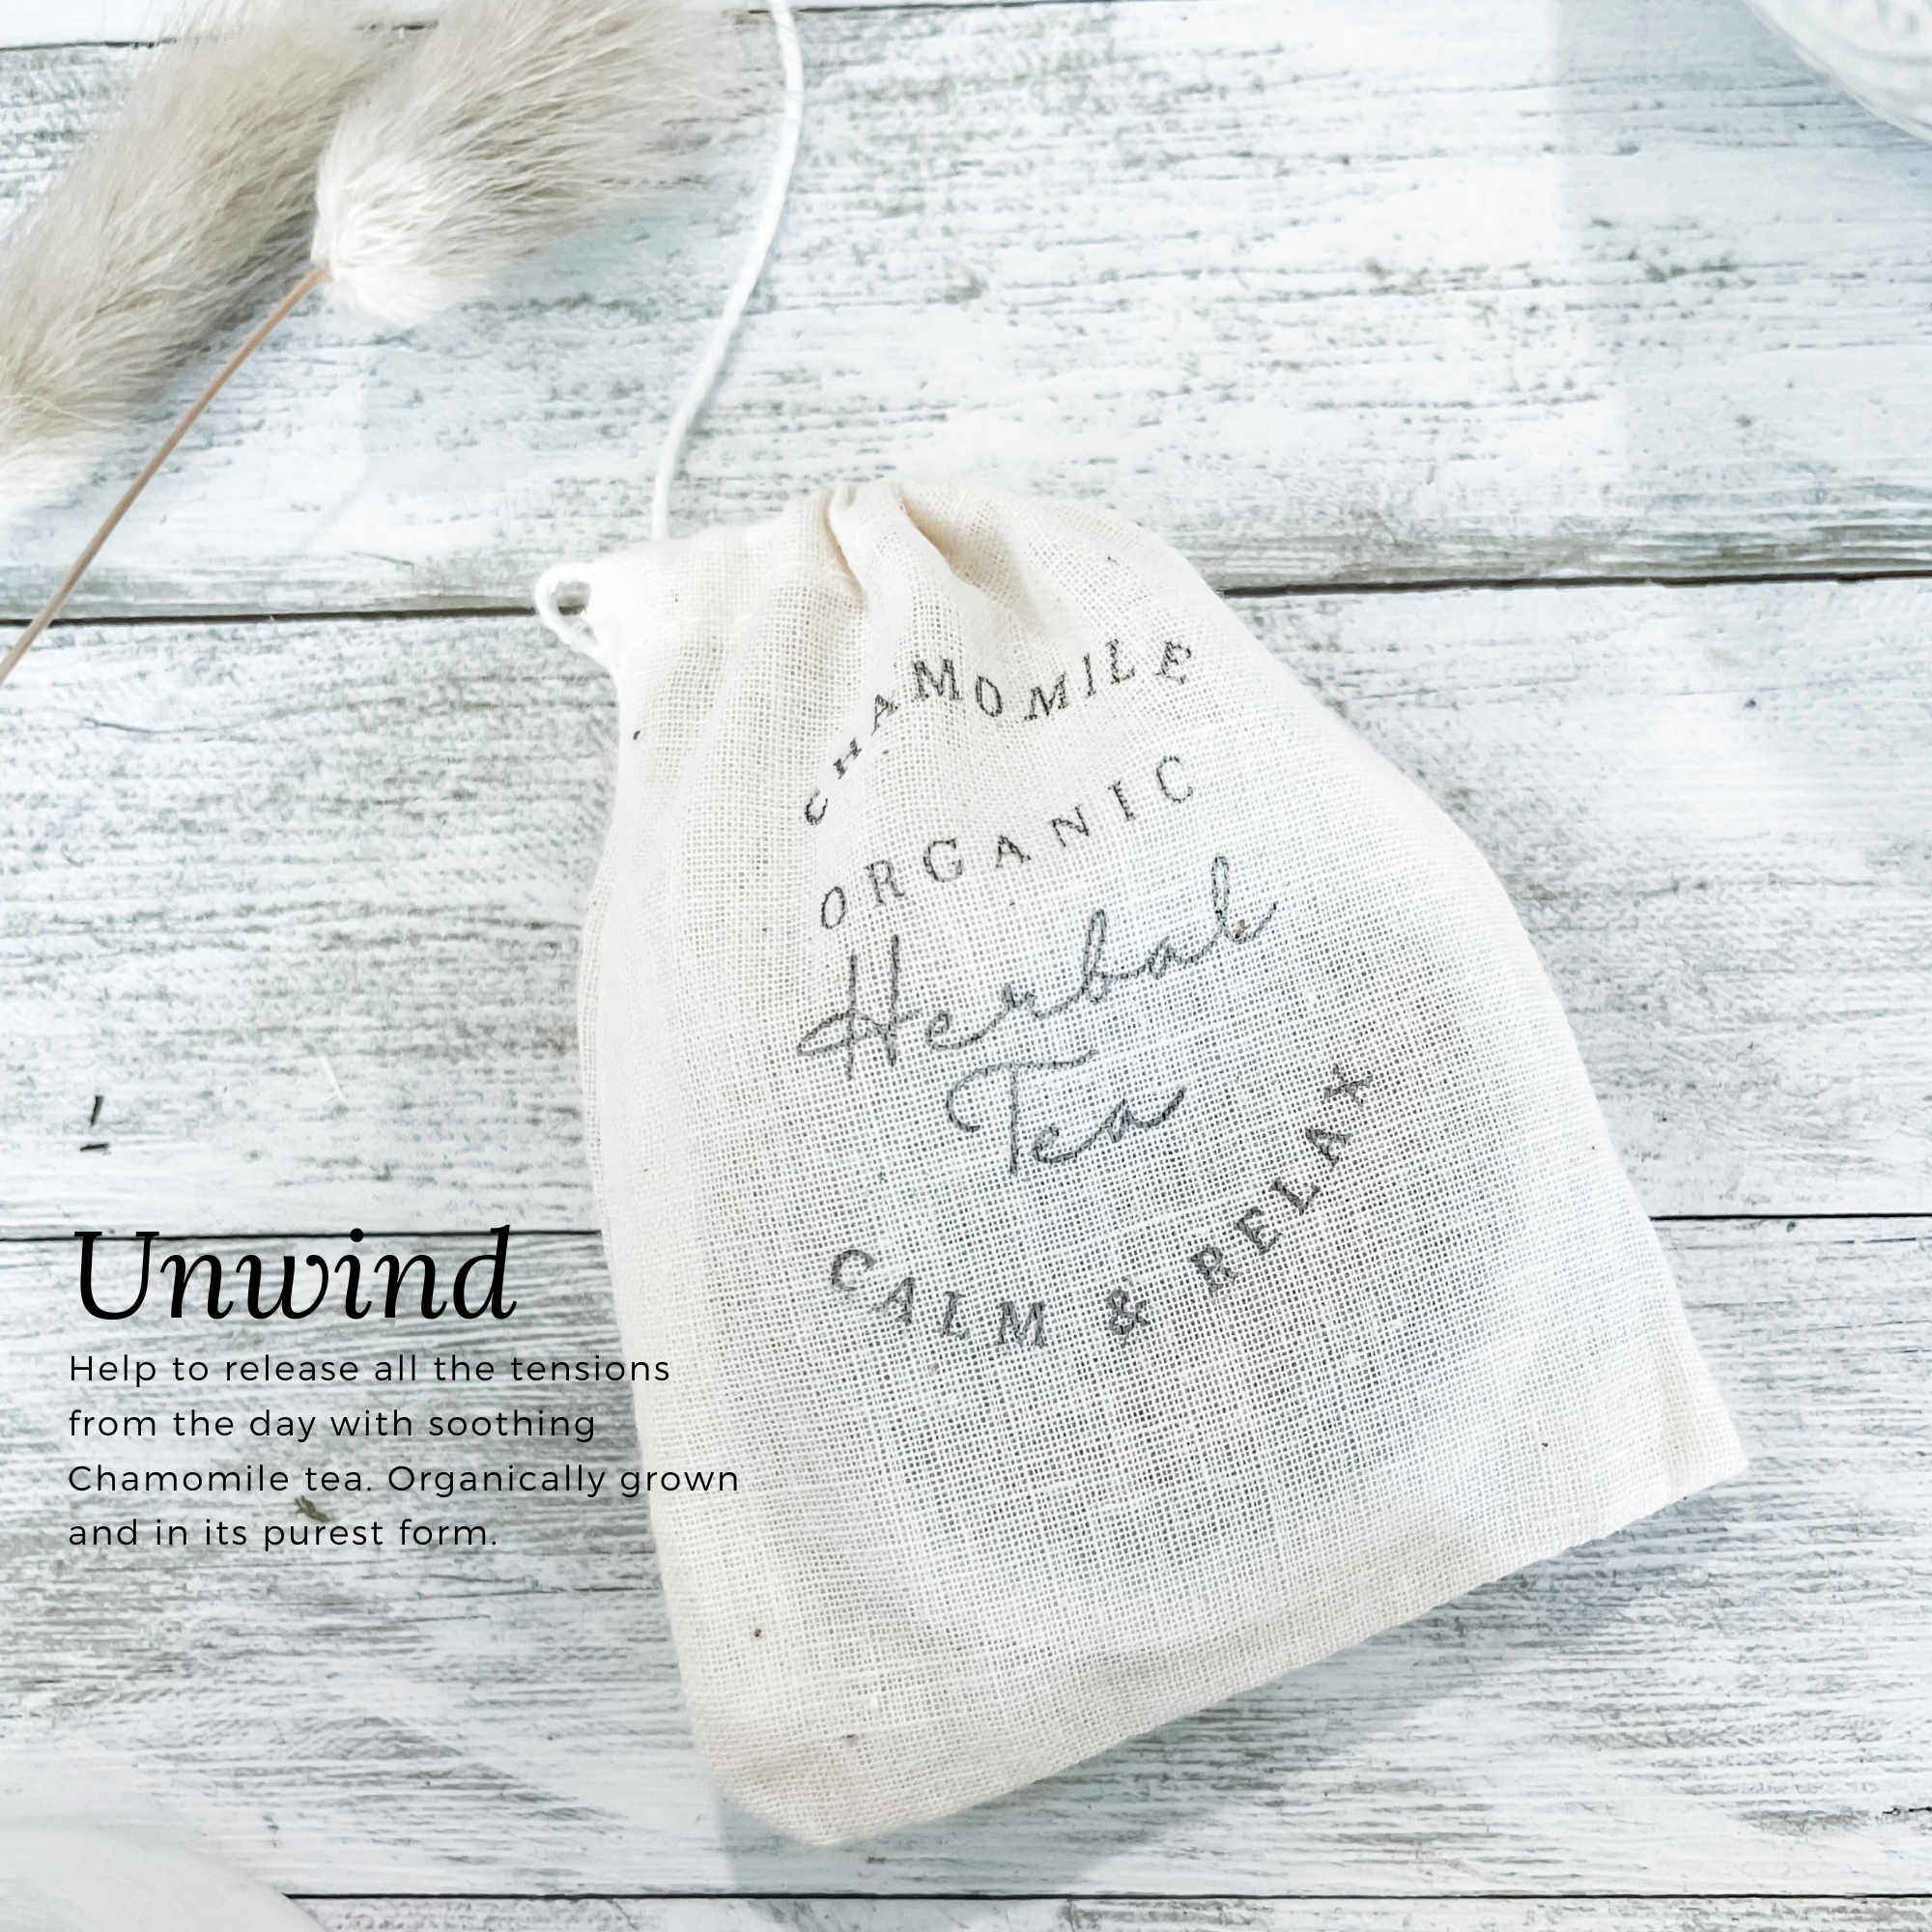 CHAMOMILE
ORGANIC
Herbal
Tea
CALM & RELAX
Unwind
Help to release all the tensions
from the day with soothing
Chamomile tea. Organically grown
and in its purest form.